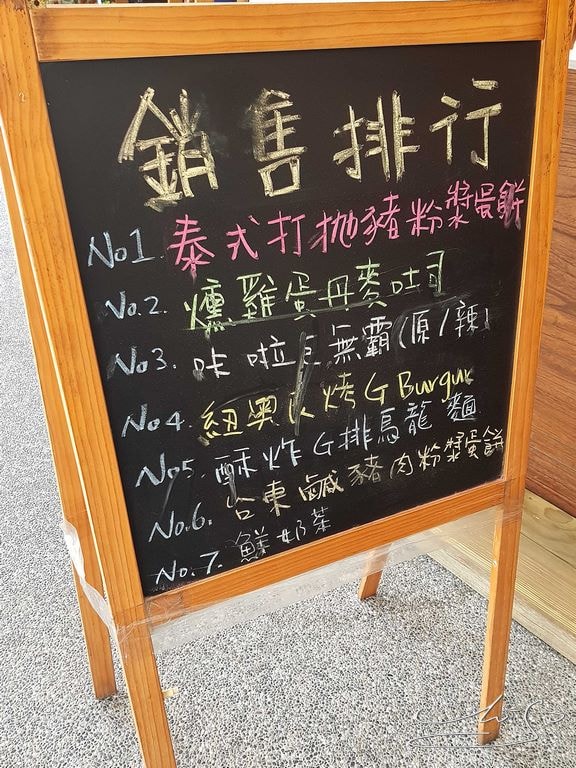 銷售排行
No1. 泰式打拋豬粉漿蛋餅
No.2. 燻雞蛋丹麥吐司
No3. 咔啦巨無霸(原/辣)
No4. 紐奧良烤G Burgur
No5. 酥炸G排烏龍麵
No.6. 台東鹹豬肉粉漿蛋餅
No.7. 鮮奶茶